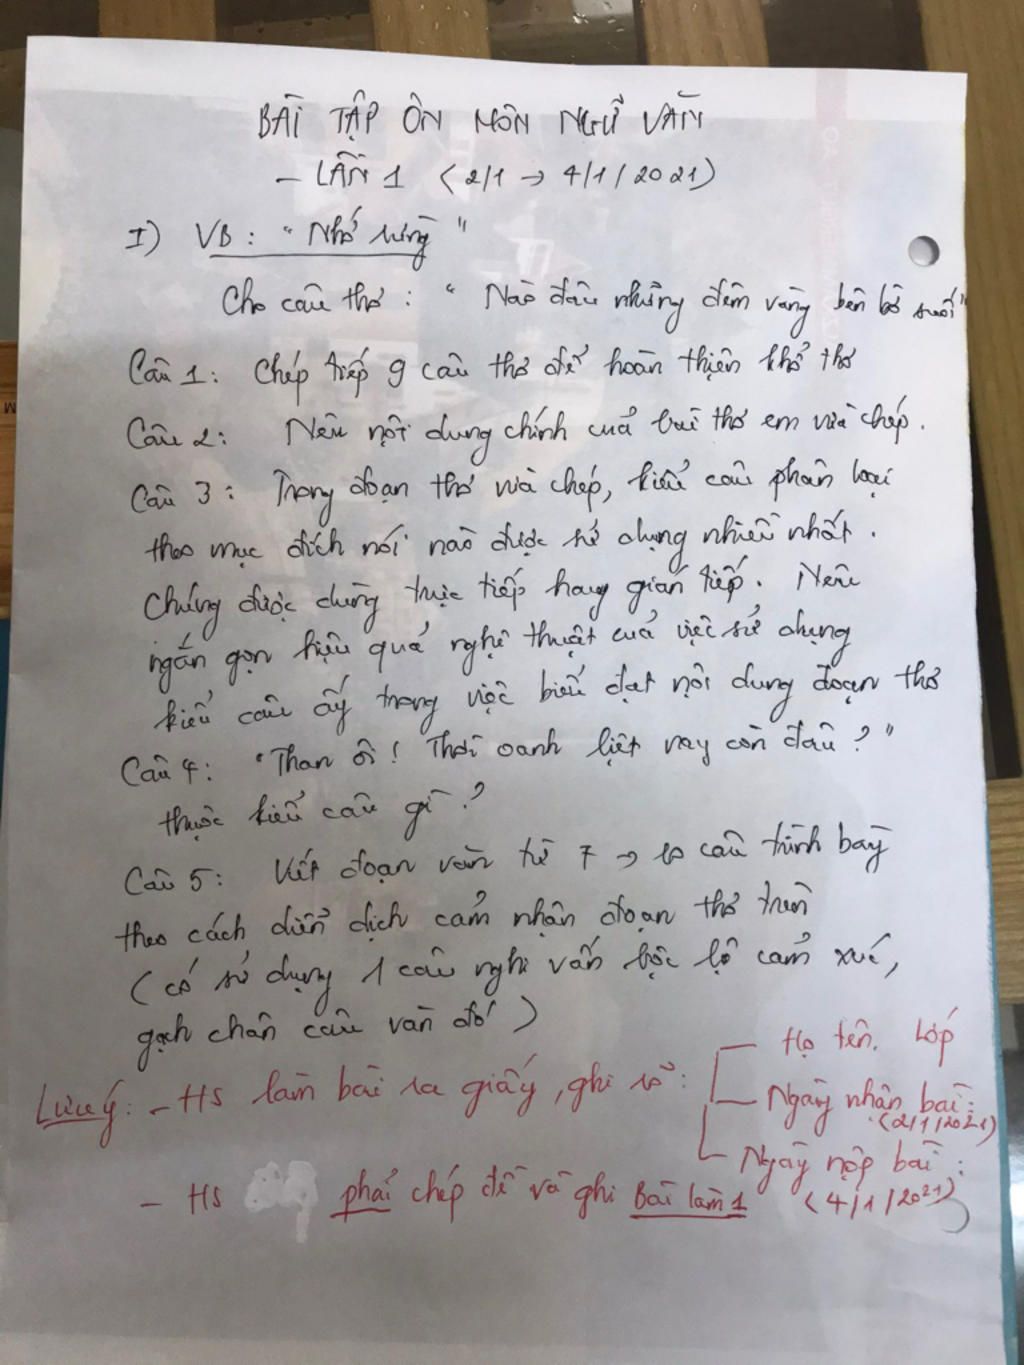 BÀI TẬP ÔN MÔN NGỮ VĂN
- LẦN 1 (2/1 → 4/1/2021)
I) VB: "Nhớ rừng"
Cho câu thơ: "Nào đâu những đêm vàng bên bờ suối"
Câu 1: Chép tiếp 9 câu thơ để hoàn thiện khổ thơ
Câu 2: Nêu nội dung chính của bài thơ em vừa chép.
Câu 3: Trong đoạn thơ vừa chép, kiểu câu phân loại
theo mục đích nói nào được sử dụng nhiều nhất.
Chúng được dùng trực tiếp hay gián tiếp. Nêu
ngắn gọn hiệu quả nghệ thuật của việc sử dụng
kiểu câu ấy trong việc biểu đạt nội dung đoạn thơ
Câu 4: "Than ôi! Thời oanh liệt nay còn đâu?"
thuộc kiểu câu gì?
Câu 5: Viết đoạn văn từ 7 → 10 câu trình bày
theo cách diễn dịch cảm nhận đoạn thơ trên
(có sử dụng 1 câu nghi vấn bộc lộ cảm xúc,
gạch chân câu văn đó)
Lưu ý: - HS làm bài ra giấy, ghi rõ: Họ tên. Lớp
Ngày nhận bài:
(2/1/2021)
Ngày nộp bài:
- HS phải chép đề và ghi Bài làm 1 (4/1/2021)